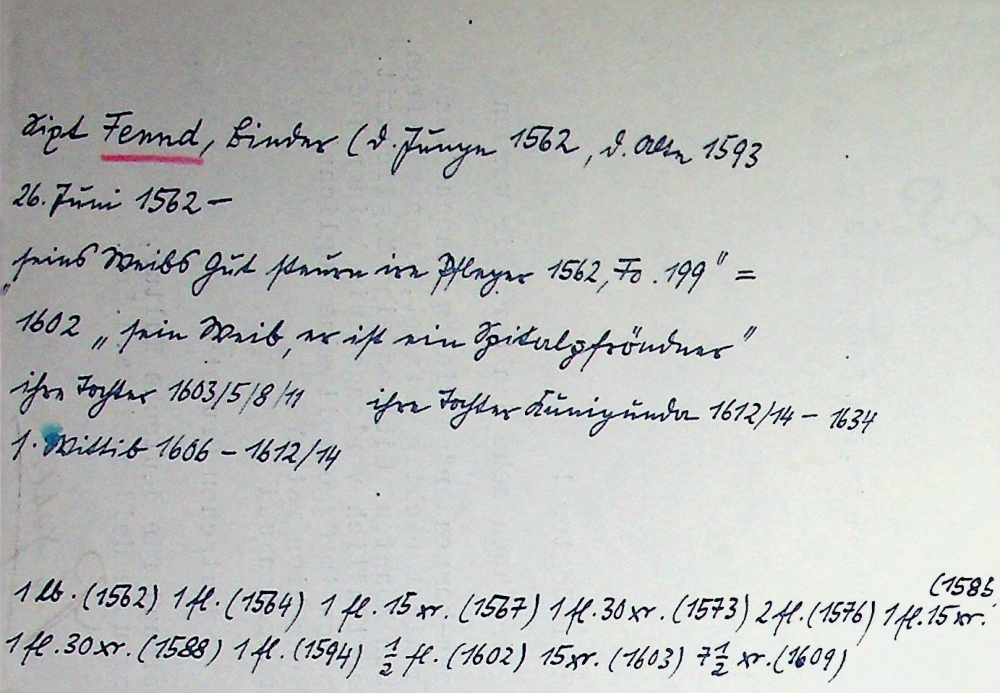 Sixt Fennd, Binder (d. Junge 1562, d. Alte 1593
26. Juni 1562 –
„seins Weibs Gut steurn ire Pfleger 1562, Fo. 199" =
1602 „sein Weib, er ist ein Spitalpfröndner"
ihre Tochter 1603/5/8/11 ihre Tochter Kunigunda 1612/14 – 1634
s. Wittib 1606 – 1612/14
(1586
1 lb. (1562) 1 fl. (1564) 1 fl. 15 xr. (1567) 1 fl. 30 xr. (1573) 2 fl. (1576) 1 fl. 15 xr.
1 fl. 30 xr. (1588) 1 fl. (1594) ½ fl. (1602) 15 xr. (1603) 7½ xr. (1609)